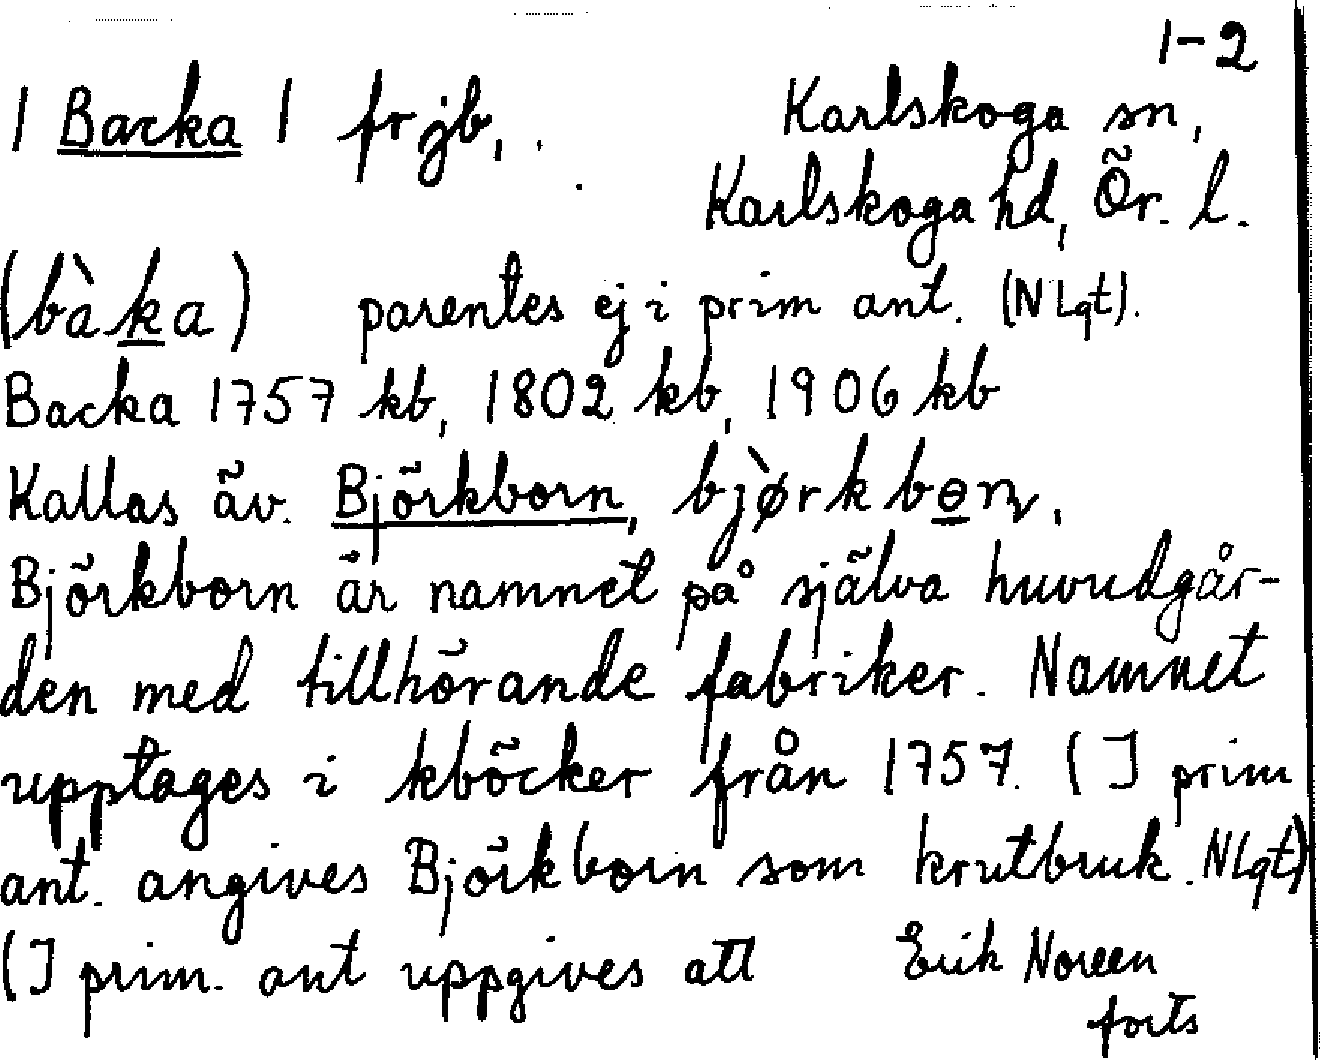 1-2
| Backa | frjb, Karlskoga sn,
Karlskoga hd, Ör. l.
(bàka) parentes ej i prim ant. (NLgt).
Backa 1757 kb, 1802 kb, 1906 kb
Kallas äv. Björkborn, bjø̀rkbɵn,
Björkborn är namnet på själva huvudgår-
den med tillhörande fabriker. Namnet
upptages i kböcker från 1757. (I prim
ant. angives Björkborn som krutbruk. NLgt)
(I prim. ant uppgives att Erik Noreen
forts